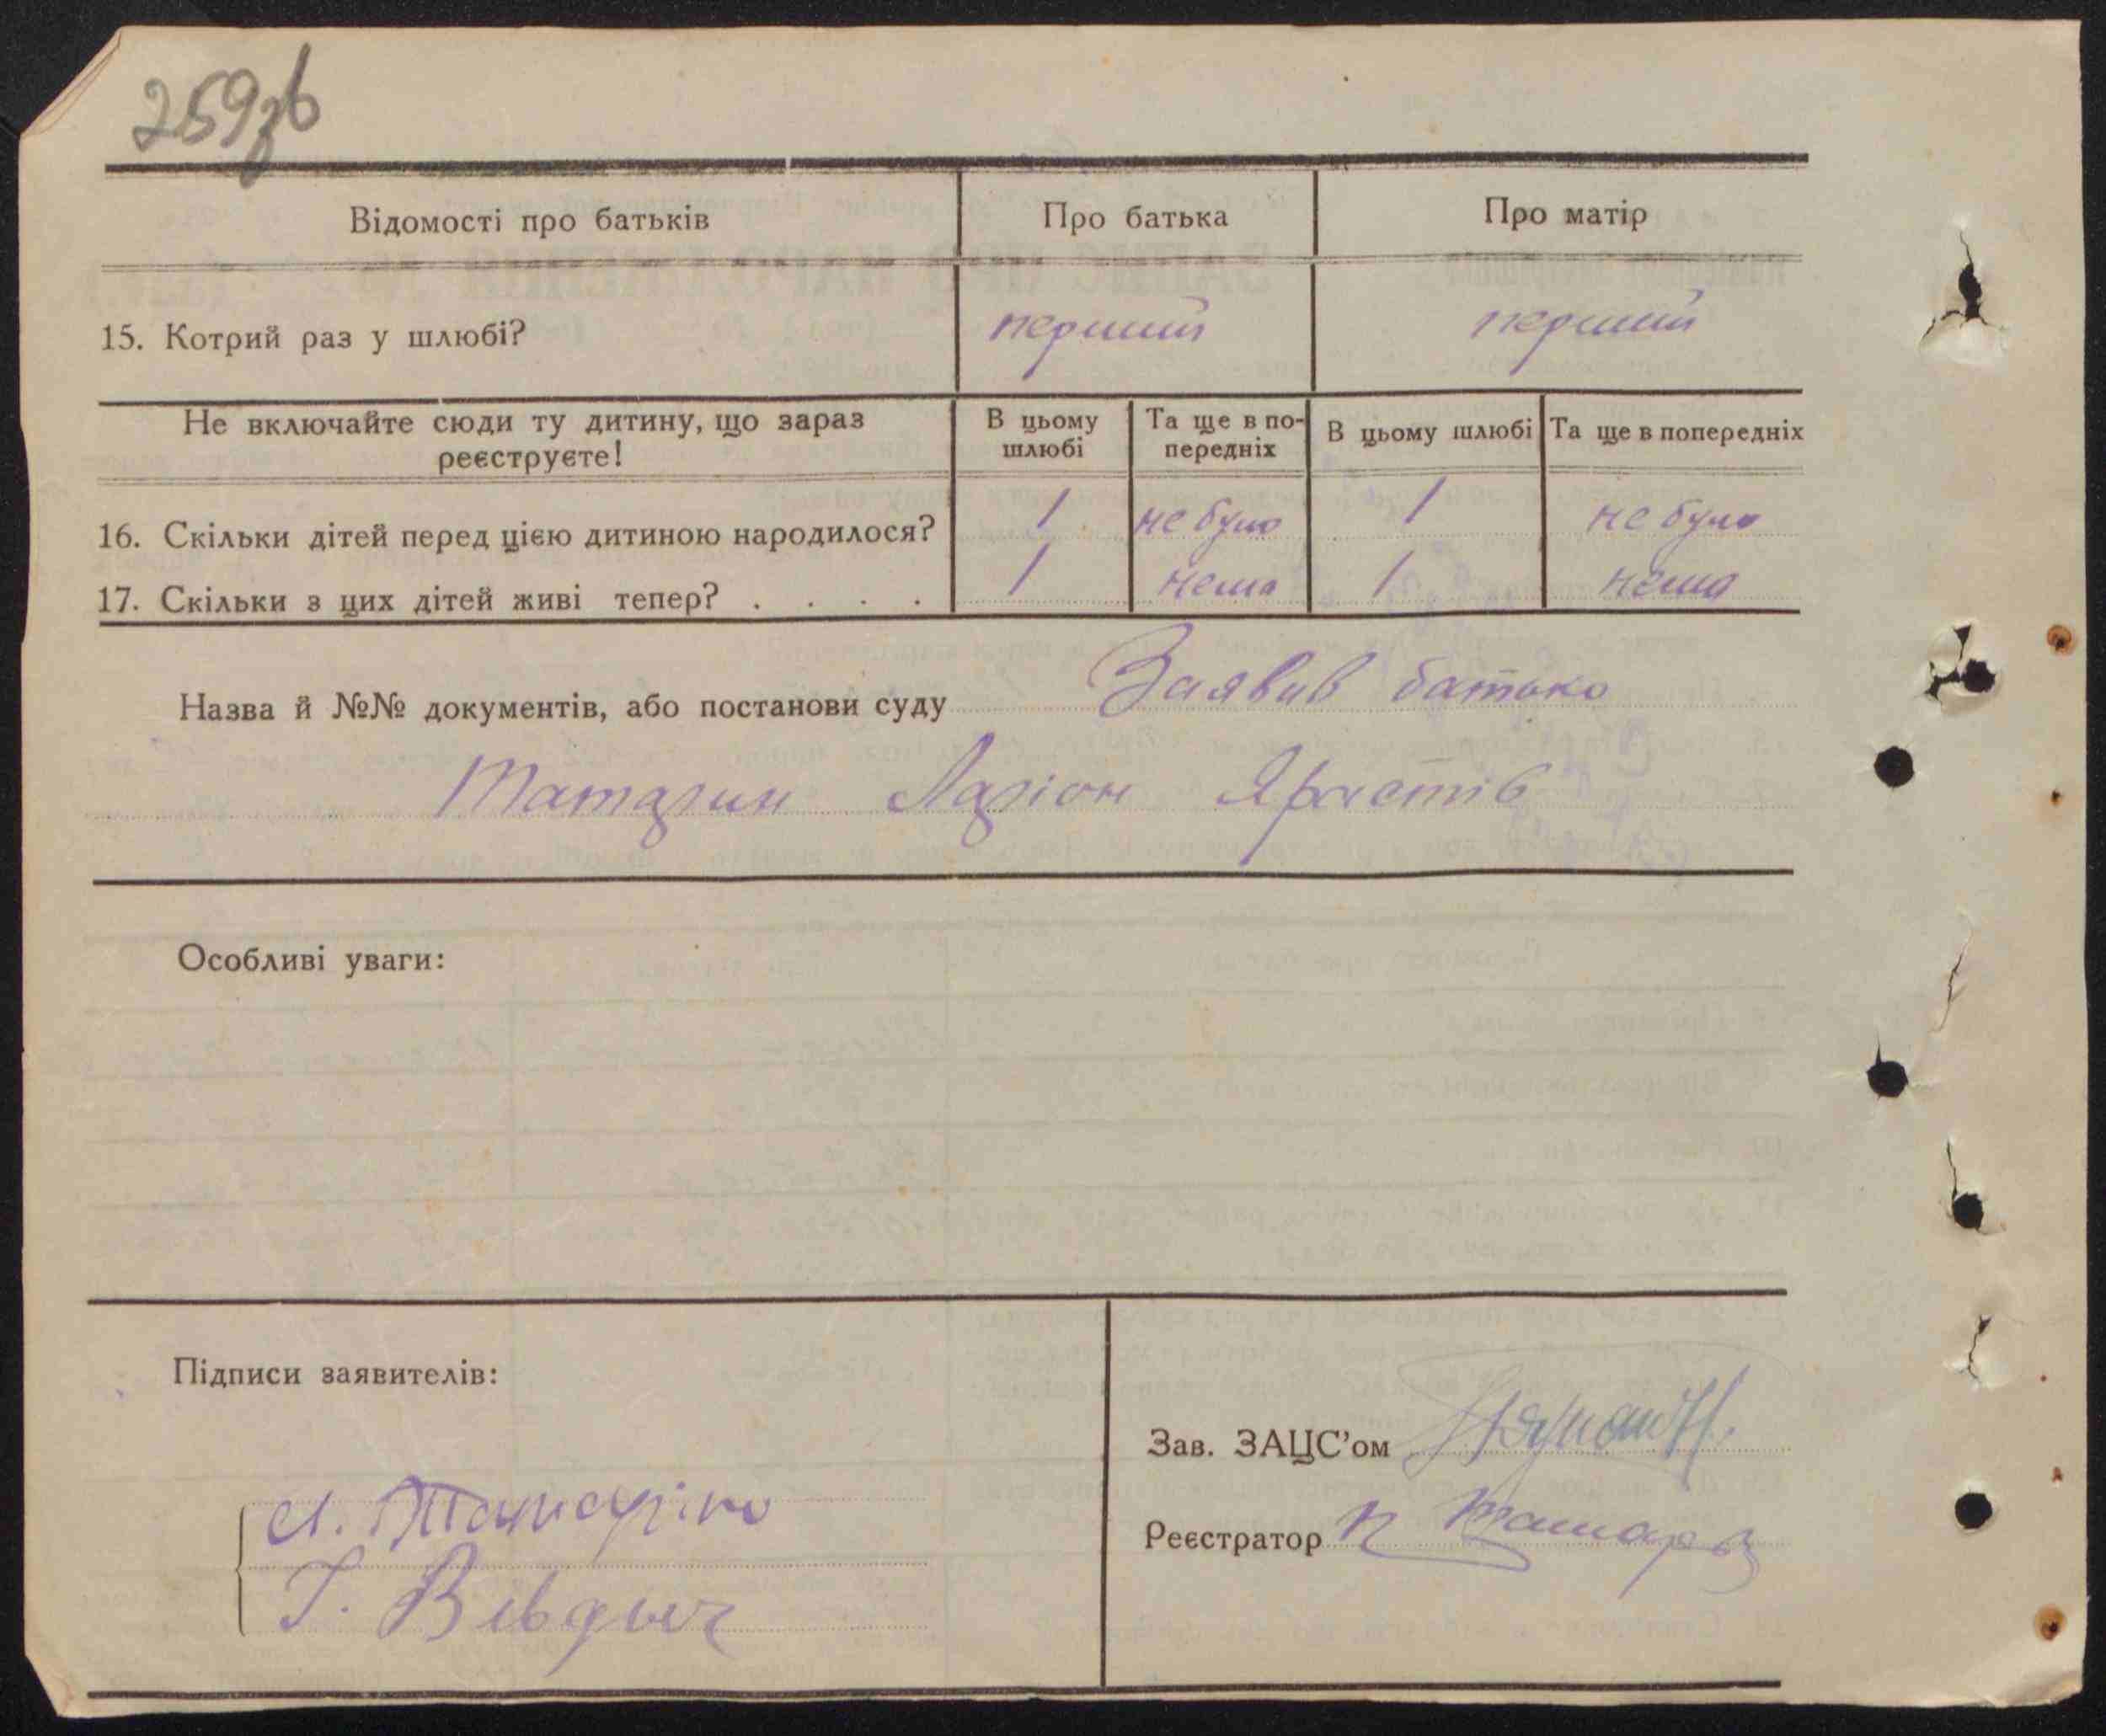 259зв
Відомості про батьків Про батька Про матір
15. Котрий раз у шлюбі? перший перший
Не включайте сюди ту дитину, що зараз реєструєте! В цьому шлюбі Та ще в по-передніх В цьому шлюбі Та ще в попередніх
16. Скільки дітей перед цією дитиною народилося? 1 не було 1 не було
17. Скільки з цих дітей живі тепер? . . . . 1 нема 1 нема
Назва й №№ документів, або постанови суду Заявив батько
Татарин Ларіон
Особливі уваги:
Підписи заявителів:
Зав. ЗАЦС’ом
Реєстратор